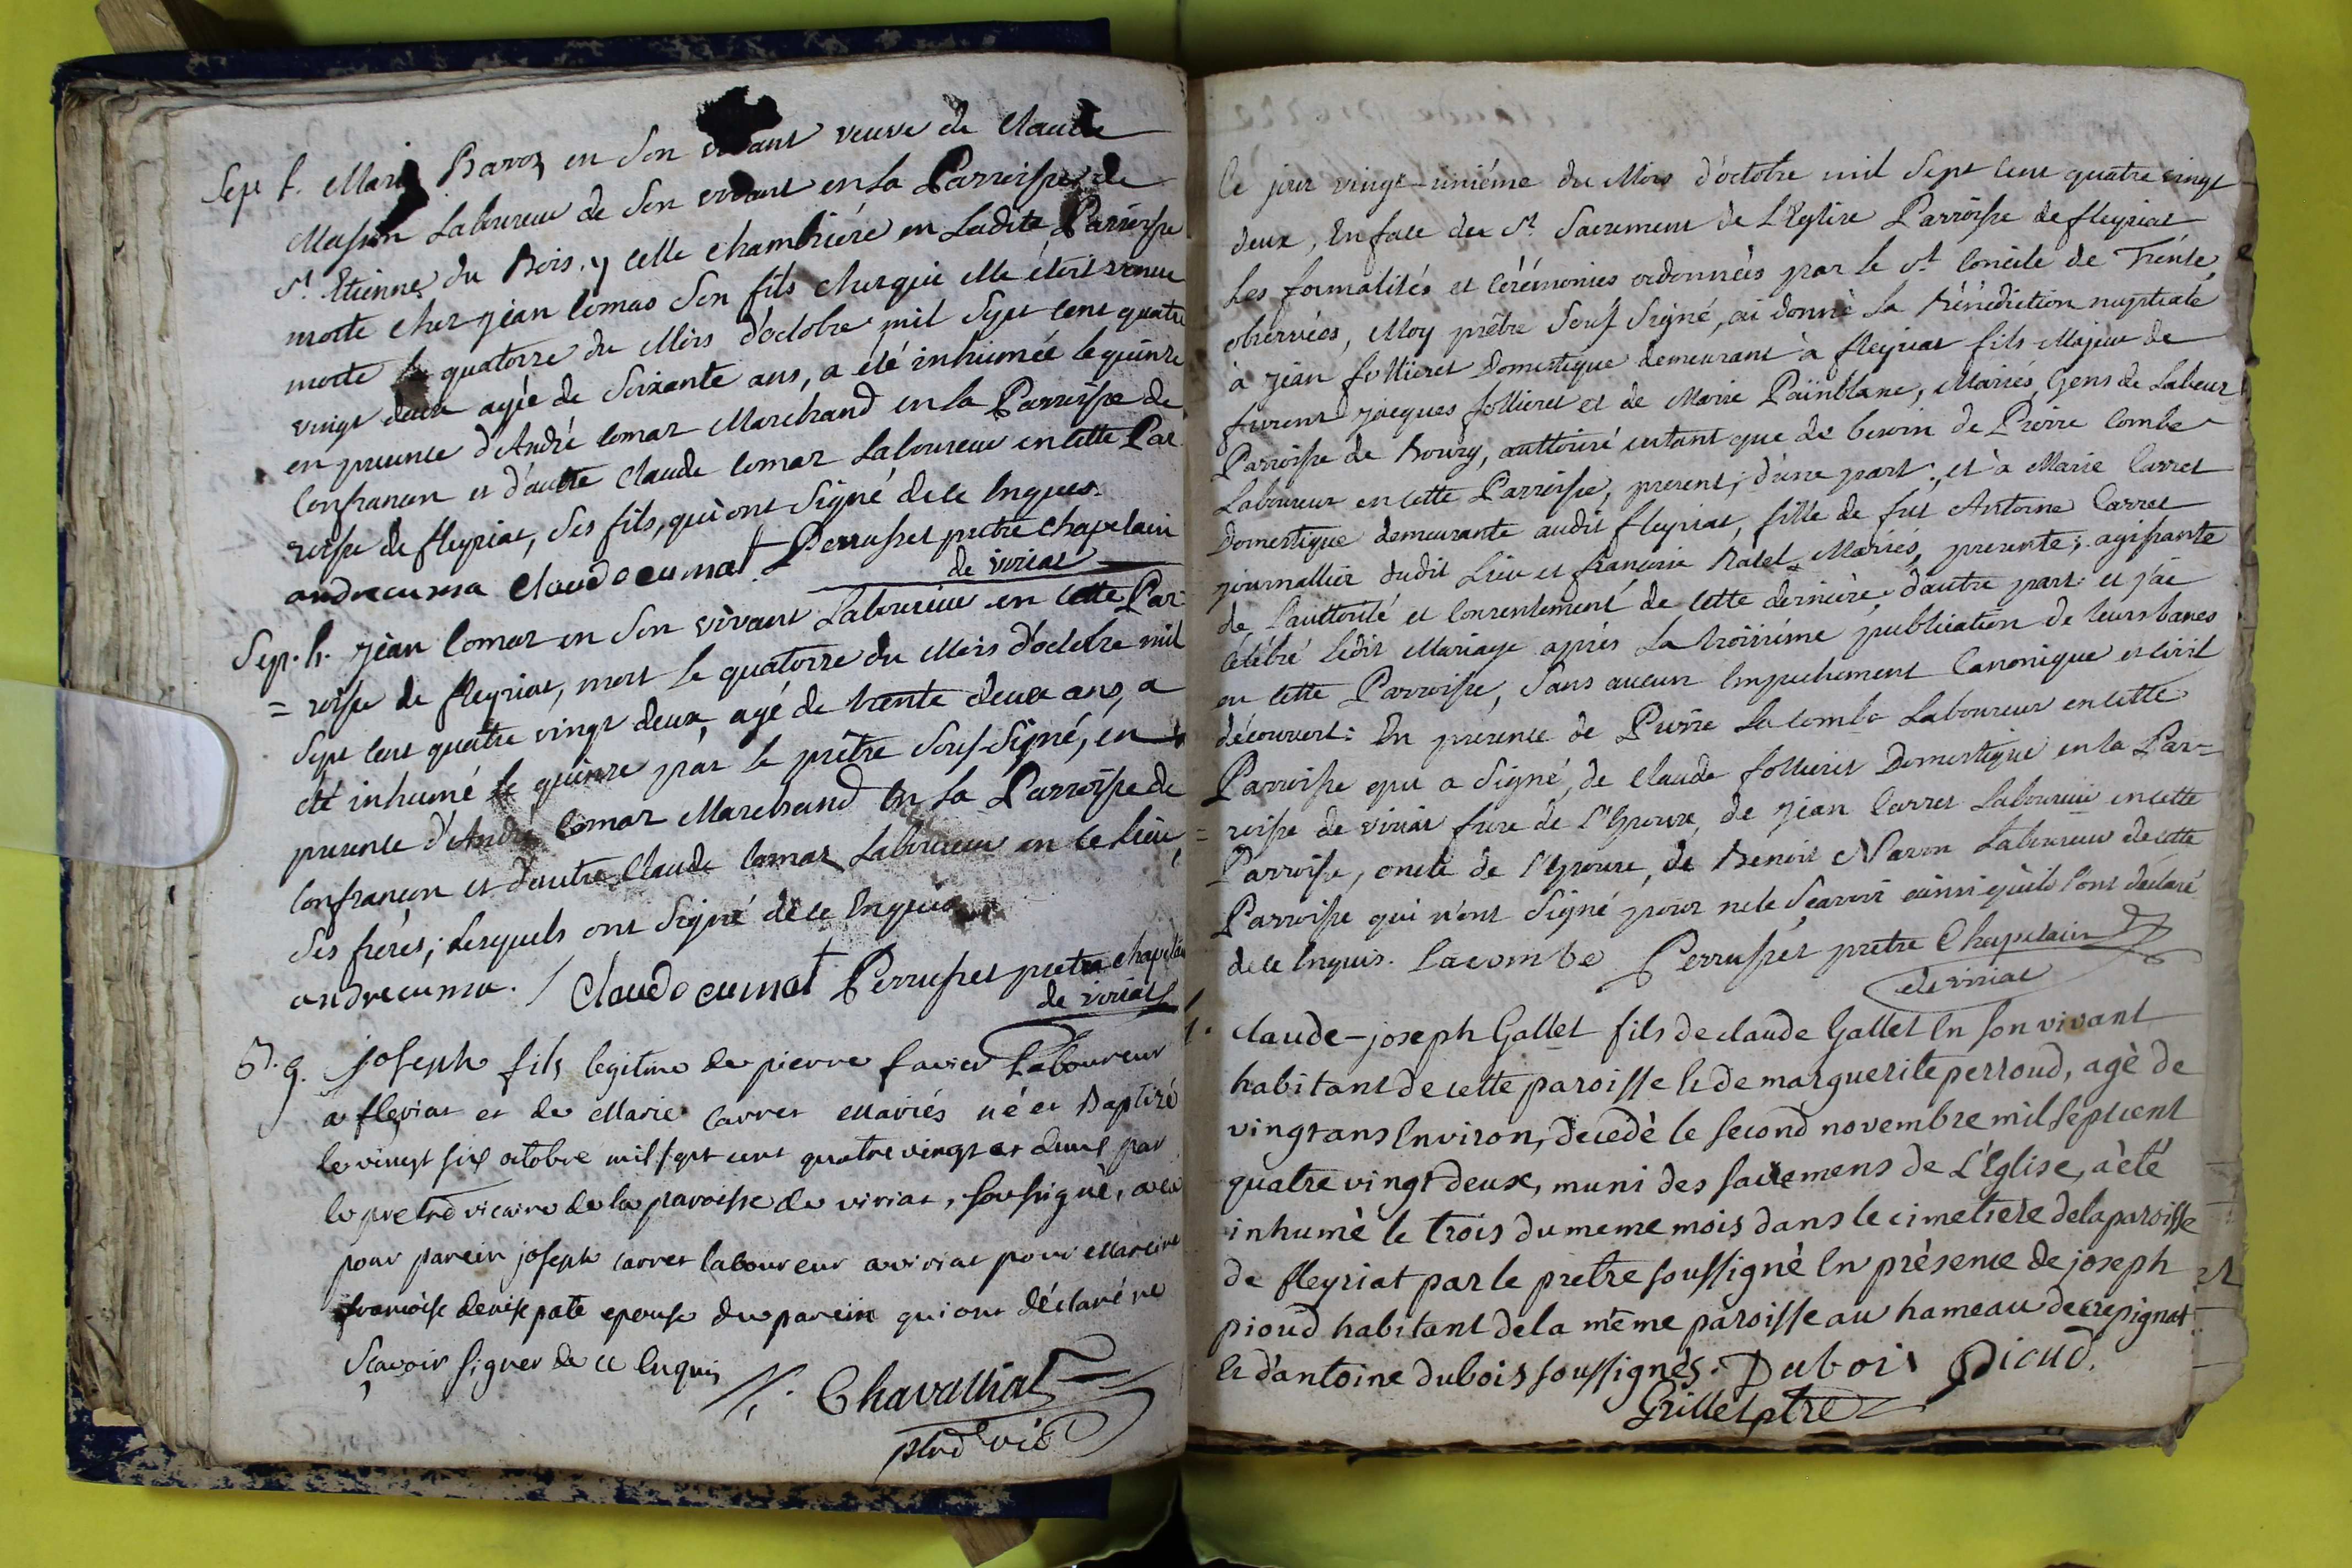 Sep. f. Marie Baroz en son vivant veuve de Claude
Masson Laboureur de son vivant en la Parroisse de
St. Etienne du Bois, celle chambriére en Ladite Parroisse
morte chez jean Comas son fils chez qui elle étoit venue
morte le quatorze du Mois d'octobre mil Sept Cent quatre
vingt deux agée de Soixante ans, a été inhumée le quinze
en presence d'André Comar Marchand en la Parroisse de
Confrancon et d'autre Claude Comar Laboureur en cette Par
roisse de fleyriat, ses fils, qui ont signé de ce Enquis.
andrecuma Claudocumat Perrusset pretre chapelain
de viriat
Sep. h. jean Comar en Son vivant Laboureur en cette Par-
= roisse de fleyriat, mort le quatorze du Mois d'octobre mil
Sept Cent quatre vingt deux, agé de trente deux ans, a
été inhumé le quinze par le prêtre Sous-Signé, en
presence d'André Comar Marchand en la Parroisse de
Confrancon et d'autre Claude Comar Laboureur en ce lieu,
Ses frères; Lesquels ont Signé de ce Enquis
andrecuma. Claudocumat Perrusset pretre chapelain
de viriat
B. g. joseph fils legitime de pierre favier Laboureur
a fleyriat et de Marie Carret Mariés né et Baptizé
le vingt six octobre mil sept cent quatre vingt et deux par
le pretre vicaire de la paroisse de viriat, soussigné, a eu
pour parein joseph carret laboureur a viriat pour Mareine
francoise denise pate epouse du parein qui ont déclaré ne
sçavoir signer de ce Enquis
Chavalhiat
ptre vic
Ce jour vingt-uniéme du Mois d'octobre mil Sept Cent quatre vingt
deux, En face du St. Sacrement de L'Eglise Parroisse de fleyriat
Les formalités et Cérémonies ordonnées par le St. Concile de Trente,
observées, Moy prêtre Souss Signé, ai donné la Bénédiction nuptiale
à jean follieret Domestique demeurant à fleyriat fils Majeur de
furent jacques follieret et de Marie Païnblanc, Mariés, Gens de Labeur
Parroisse de Bourg, authorisé entant que de besoin de Pierre Combe
Laboureur en cette Parroisse, present; d'une part; et à Marie Carret
Domestique demeurante audit fleyriat, fille de fut Antoine Carret
journallier dudit Lieu et francoise Ratel Mariés, presente; agissante
de L'authorité et Consentement de cette derniére, d'autre part: et j'ai
Célébré ledit Mariage après la troisiéme publication de leurs bancs
en cette Parroisse, Sans aucun Empechement Canonique et Civil
découvert: En présence de Pierre La combe Laboureur en cette
Parroisse qui a Signé, de Claude follieret Domestique en la Par=
= roisse de viriat frere de l'Epoux, de jean Carret Laboureur en cette
Parroisse, oncle de l'Epouse, de Benoit Varon Laboureur de cette
Parroisse qui n'ont Signé pour ne le Sçavoir ainsi qu'ils l'ont déclaré
de ce Enquis. Lacombe Perrusset pretre Chapelain
de viriat
claude-joseph Gallet fils de claude Gallet En son vivant
habitant de cette paroisse & de marguerite perroud, agè de
vingt ans Environ, decedè le second novembre mil sept cent
quatre vingt deux, muni des sacremens de L'Eglise, a èté
inhumè le trois du meme mois dans le cimetiere de la paroisse
de fleyriat par le pretre soussignè En présence de joseph
pioud habitant de la même paroisse au hameau de crepignat
& d'antoine dubois soussignés. Dubois Pioud.
Grillet ptre